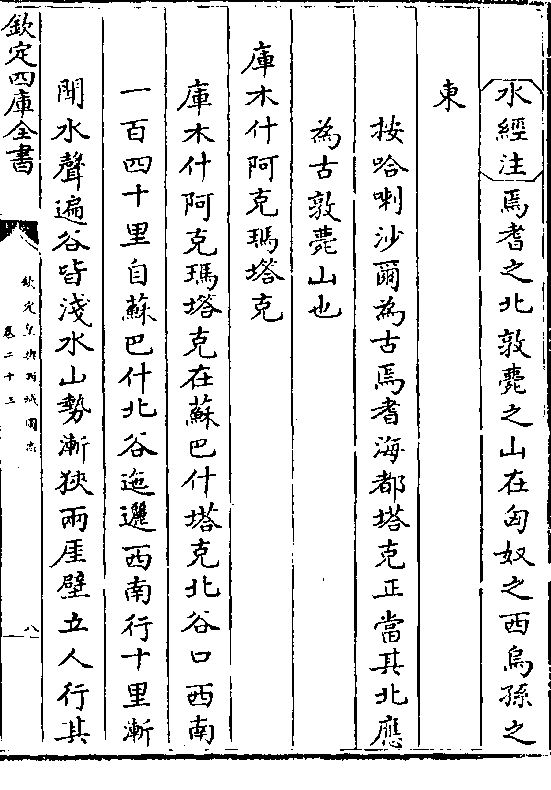 水經注焉耆之北敦薨之山在匈奴之西烏孫之
東
按哈喇沙爾為古焉耆海都塔克正當其北應
為古敦薨山也
庫木什阿克瑪塔克
庫木什阿克瑪塔克在蘇巴什塔克北谷口西南
一百四十里自蘇巴什北谷迤邐西南行十里漸
聞水聲遍谷皆淺水山勢漸狹兩厓壁立人行其
欽定四庫全書
欽定皇輿西域圖志
卷二十三
八